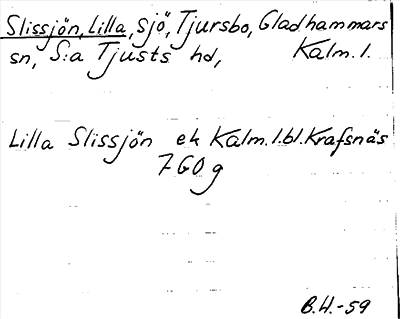 Slissjön, Lilla, sjö, Tjursbo, Gladhammars
sn, S:a Tjusts hd, Kalm. l.
Lilla Slissjön ek Kalm. l. bl. Krafsnäs
7 GO g
B.H.-59